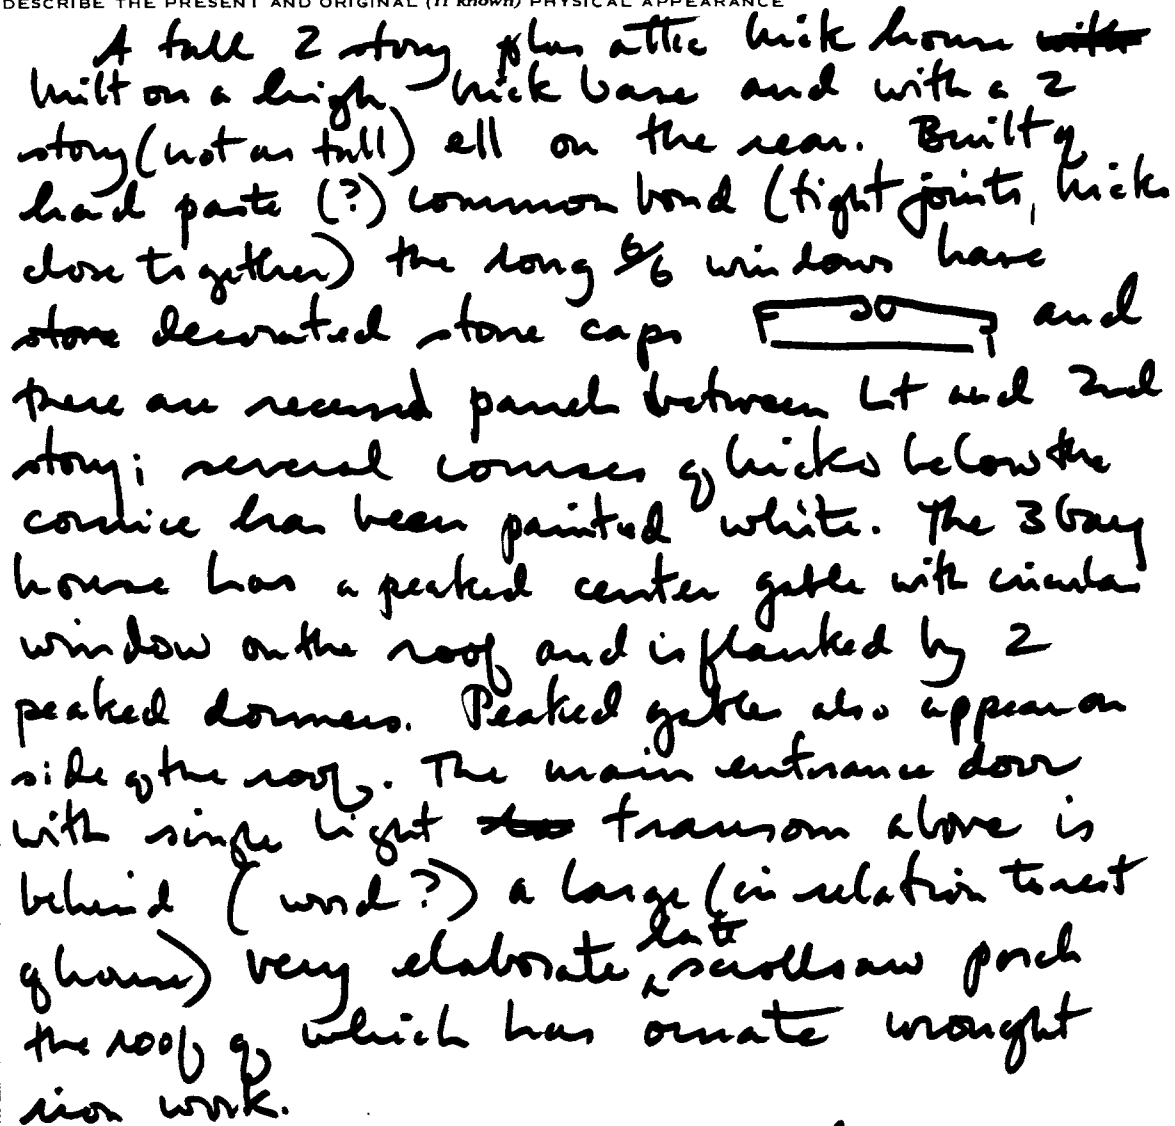 DESCRIBE THE PRESENT AND ORIGINAL (if known) PHYSICAL APPEARANCE
A tall 2 story plus attic brick house with
built on a high brick base and with a 2
story (not as tall) ell on the rear. Built of
hard paste (?) common bond (tight joints, bricks
close together) the long 6/6 windows have
stone decorated stone caps and
there are recessed panels between 1st and 2nd
story; several courses of bricks below the
cornice has been painted white. The 3 bay
house has a peaked center gable with circular
window on the roof and is flanked by 2
peaked dormers. Peaked gables also appear on
side of the roof. The main entrance door
with single light transom above is
behind (word?) a large (in relation to rest
of house) very elaborate late scrollsaw porch
the roof of which has ornate wrought
iron work.